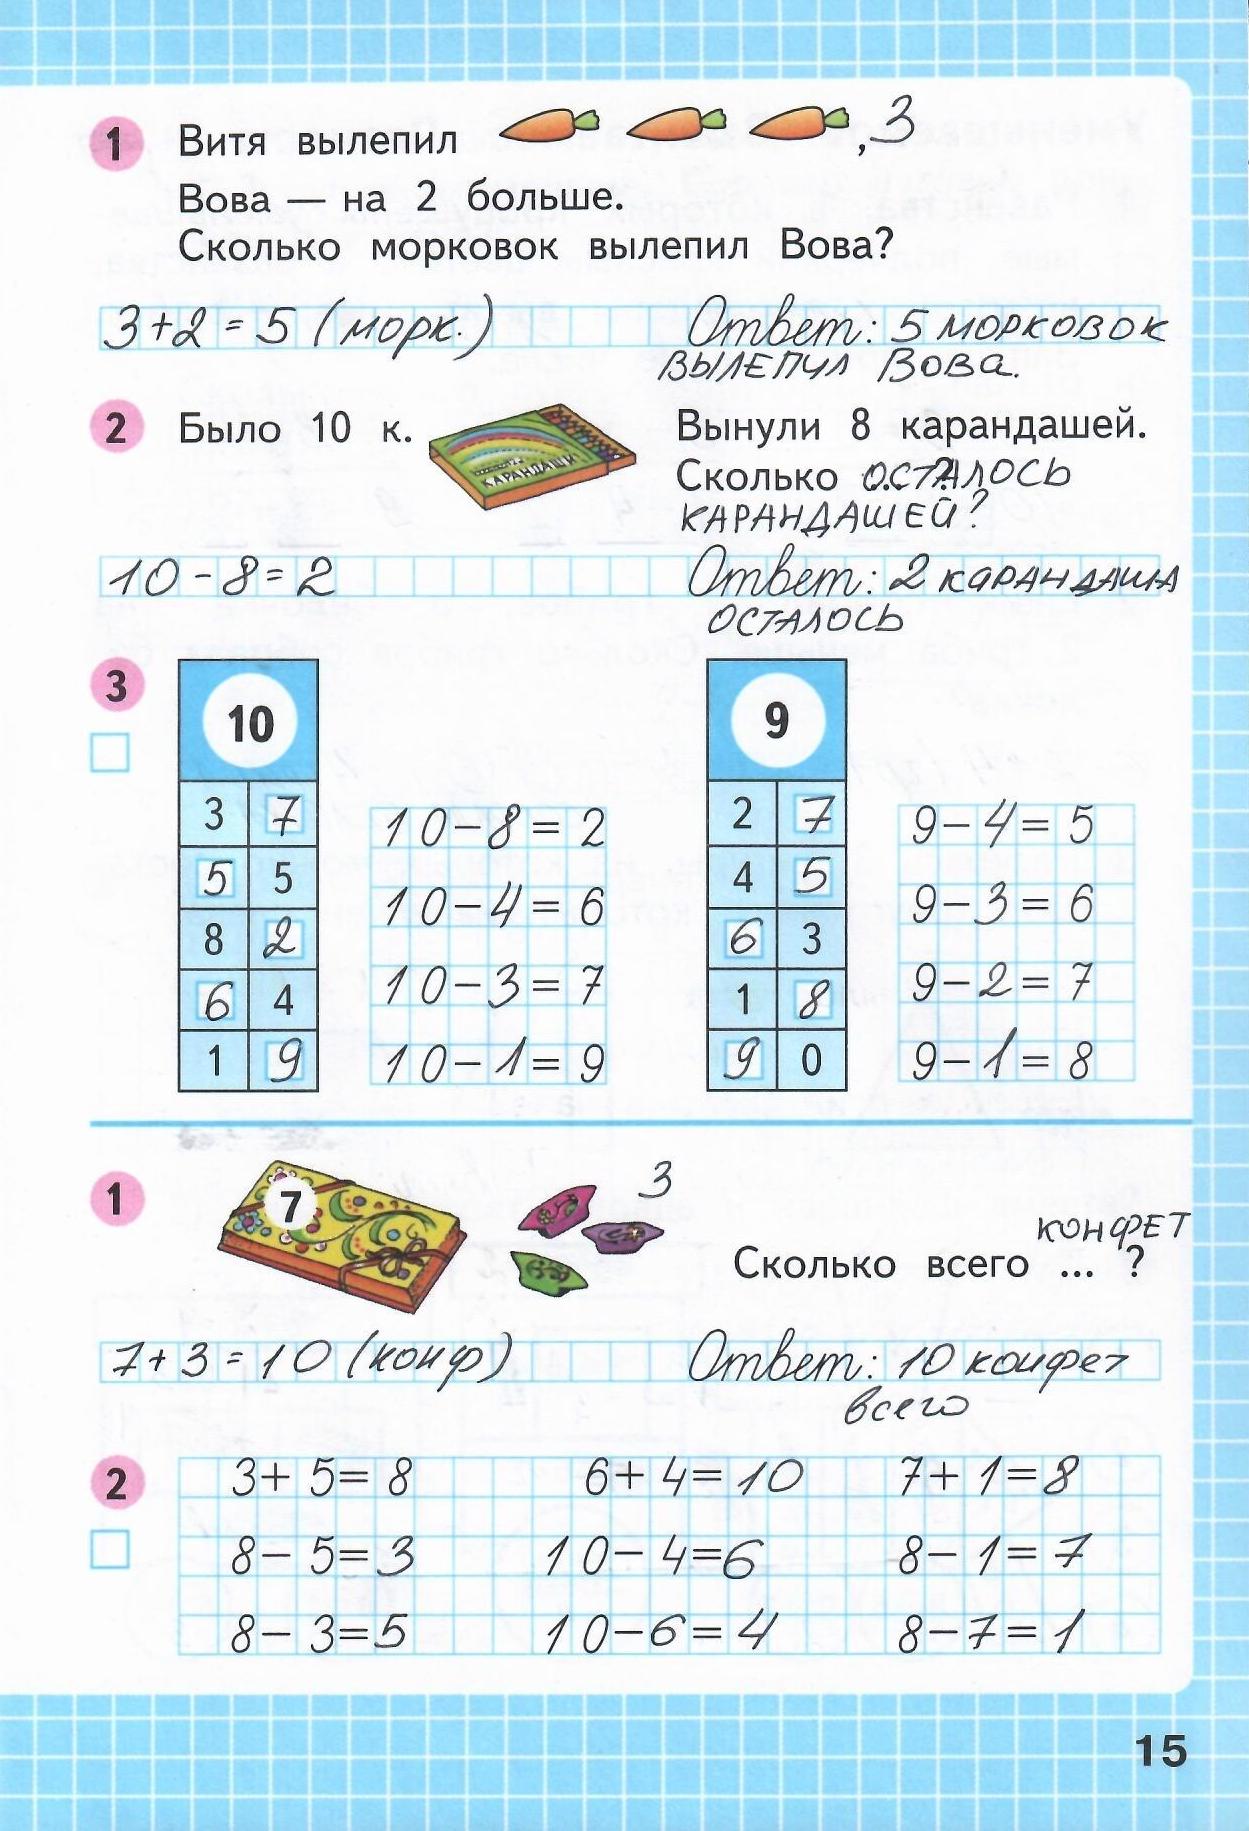 1 Витя вылепил , 3
Вова — на 2 больше.
Сколько морковок вылепил Вова?
3+2=5 (морк.) Ответ: 5 морковок
вылепил Вова.
2 Было 10 к. КАРАНДАШИ Вынули 8 карандашей.
Сколько осталось
карандашей?
10-8=2 Ответ: 2 карандаша
осталось
3 10 9
3 7 2 7
5 5 4 5
8 2 6 3
6 4 1 8
1 9 9 0
10-8=2 9-4=5
10-4=6 9-3=6
10-3=7 9-2=7
10-1=9 9-1=8
1 7 3
конфет
Сколько всего ... ?
7+3=10 (конф) Ответ: 10 конфет
всего
2 3+5=8 6+4=10 7+1=8
8-5=3 10-4=6 8-1=7
8-3=5 10-6=4 8-7=1
15